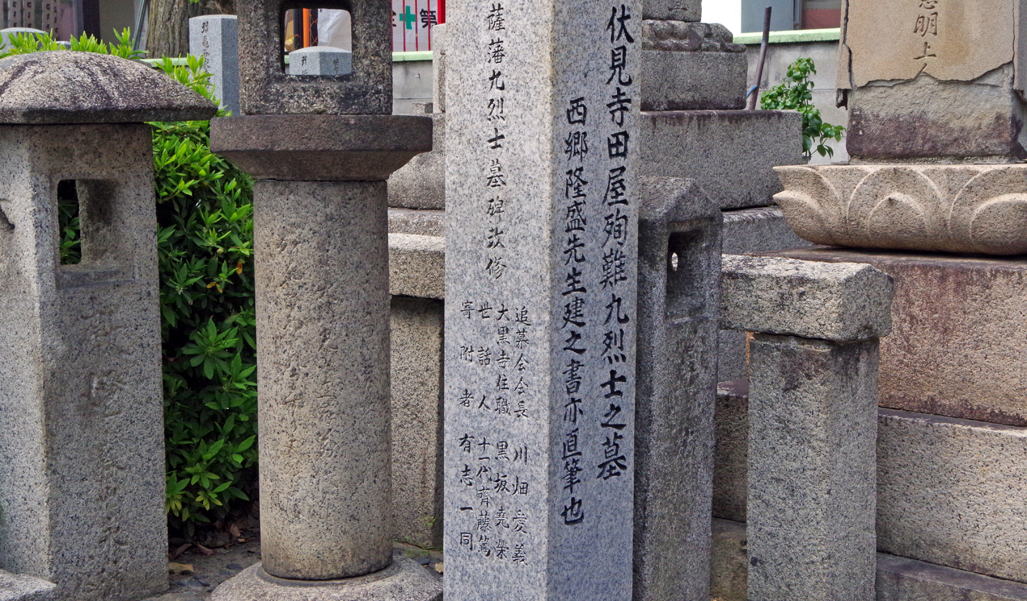 伏見寺田屋殉難九烈士之墓
西郷隆盛先生建之書亦直筆也
薩藩九烈士墓碑改修
追慕会会長 川畑愛義
大黒寺住職 黒坂堯栄
世話人 十一代斉藤篤
寄附者 有志一同
明上